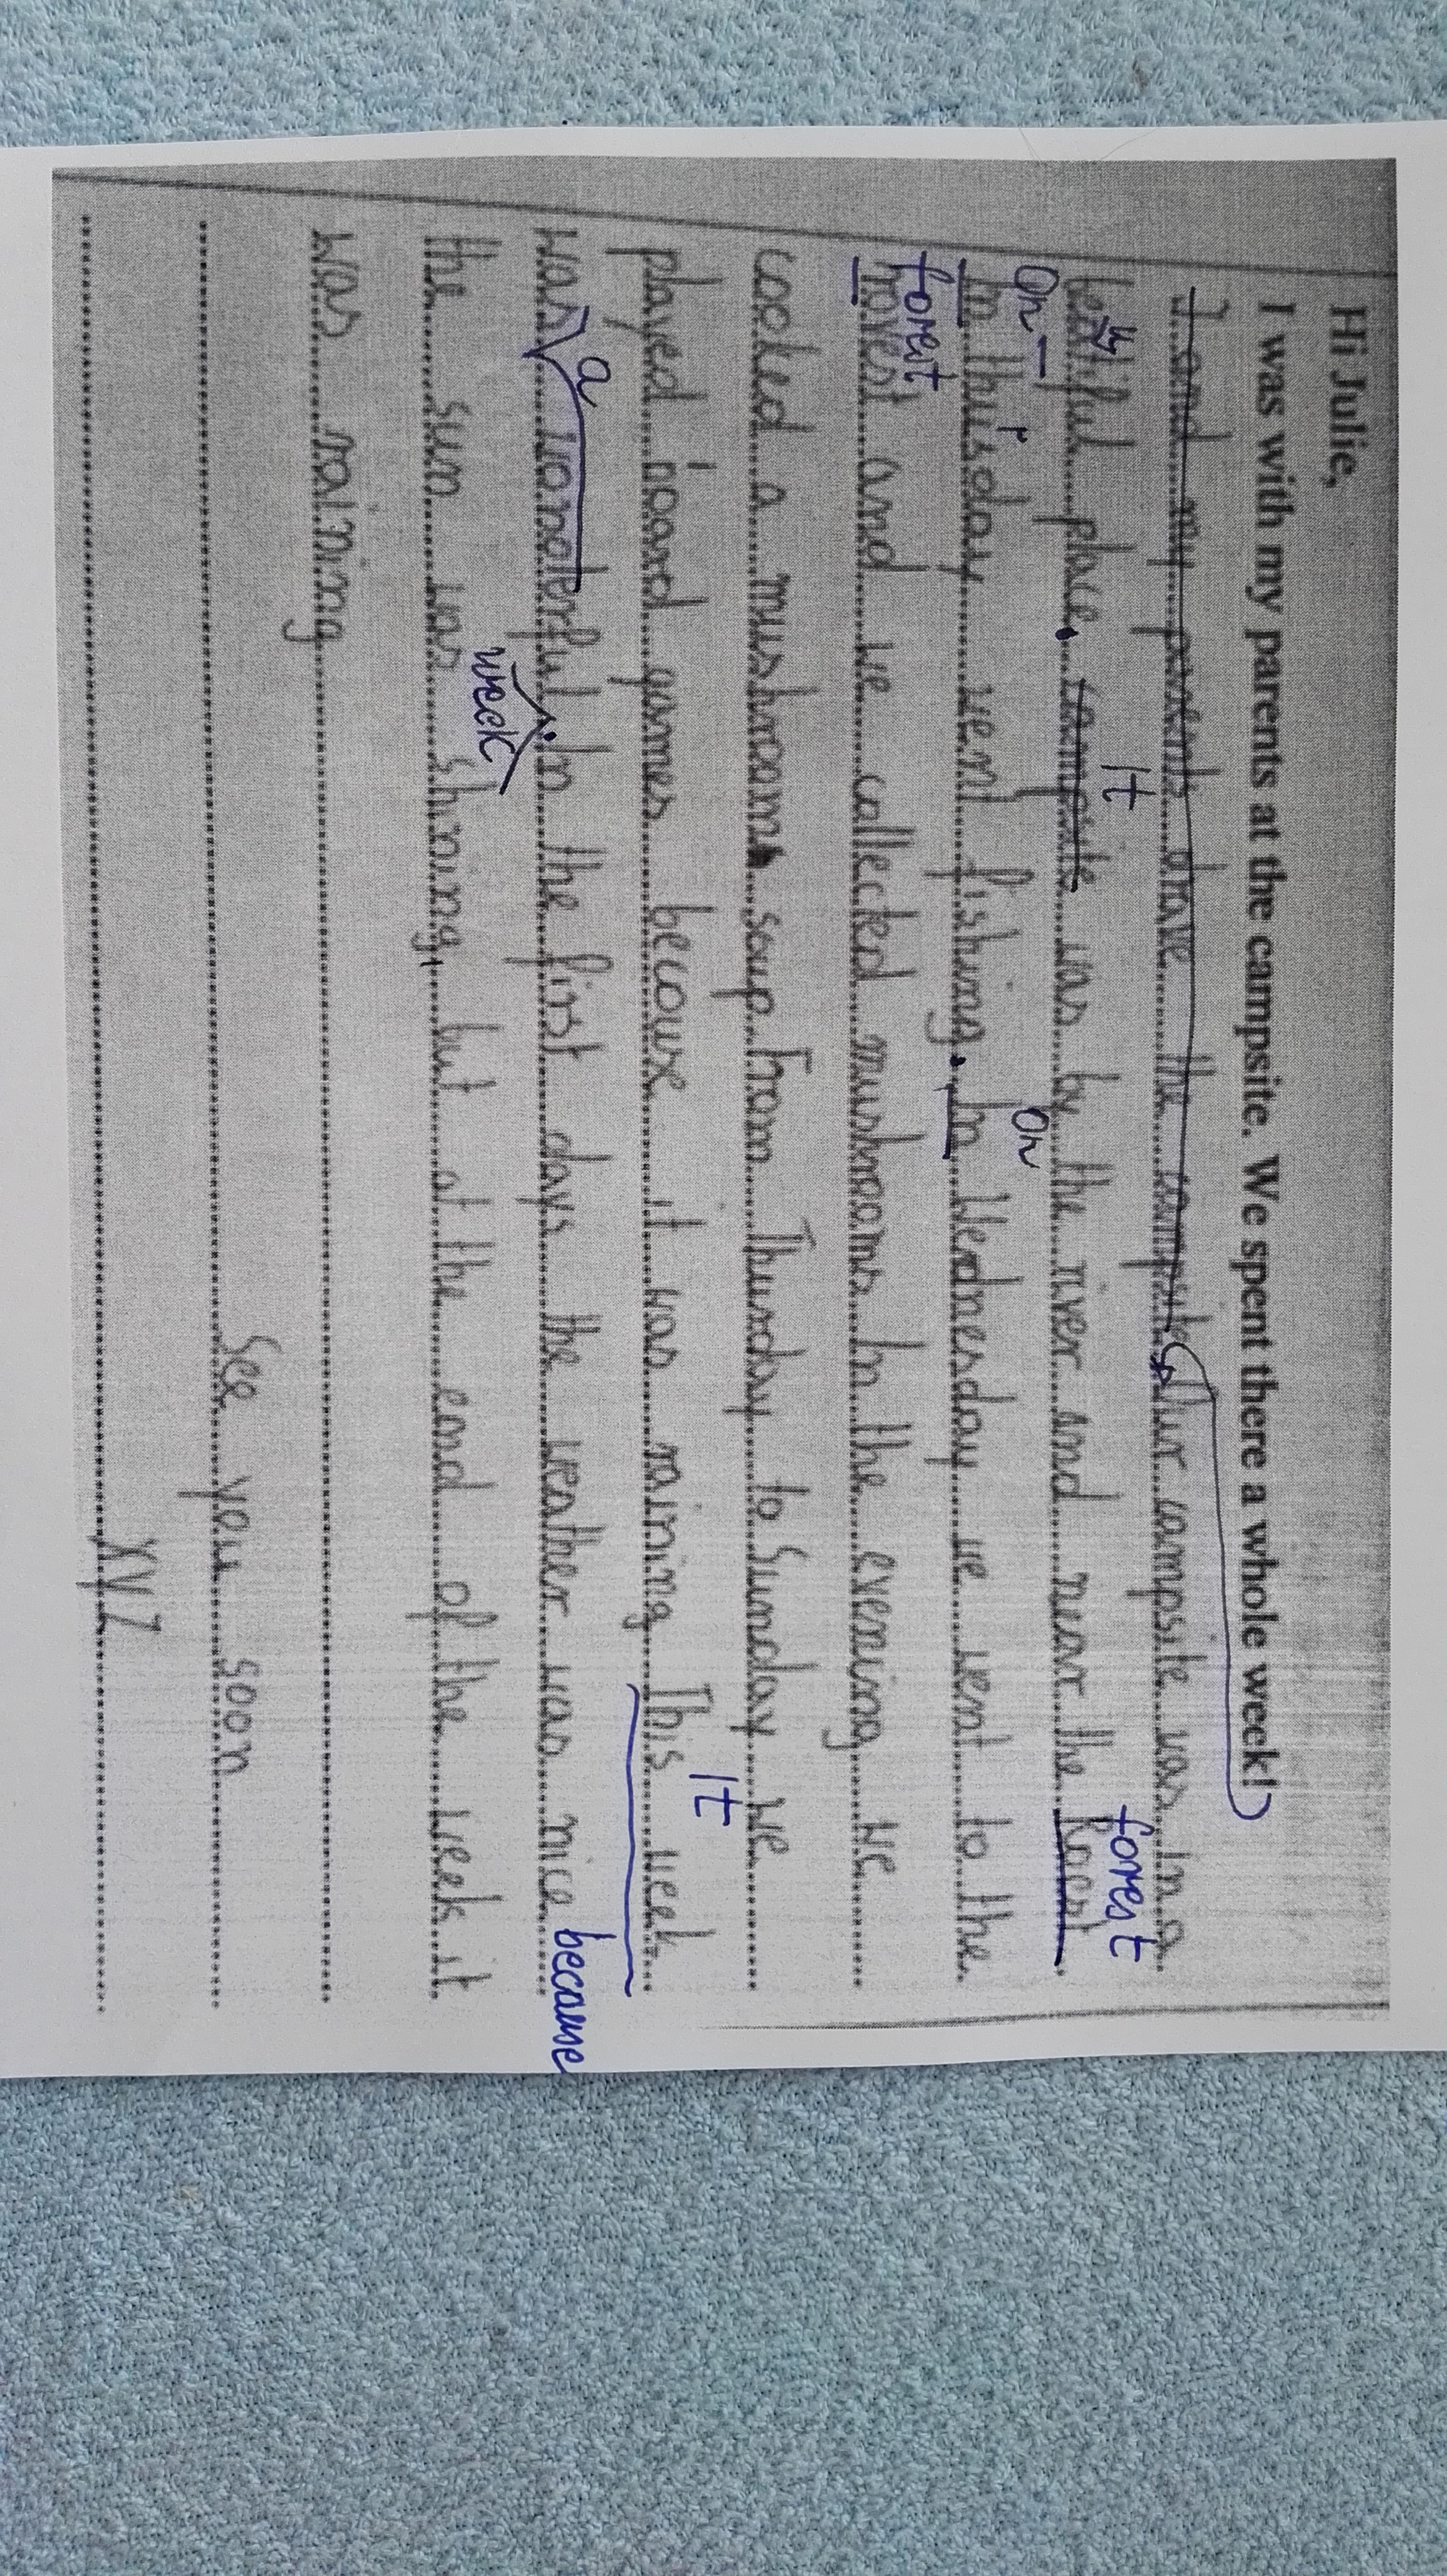 Hi Julie,
I was with my parents at the campsite. We spent there a whole week!
I and my parents drove the campsite. Our campsite was in a
It forest
beatiful place. campsite was by the river and near the
On On
In thusday went fishing. In Wednesday we went to the
forest
horest and we collected mushrooms. In the evening we
cooked a mushroom soup. From Thursday to Sunday we
It
played board games because it was raining This week
a because
was wonderful. In the first days the weather was nice
week
the sun was shining, but at the end of the week it
was raining
See you soon
XYZ